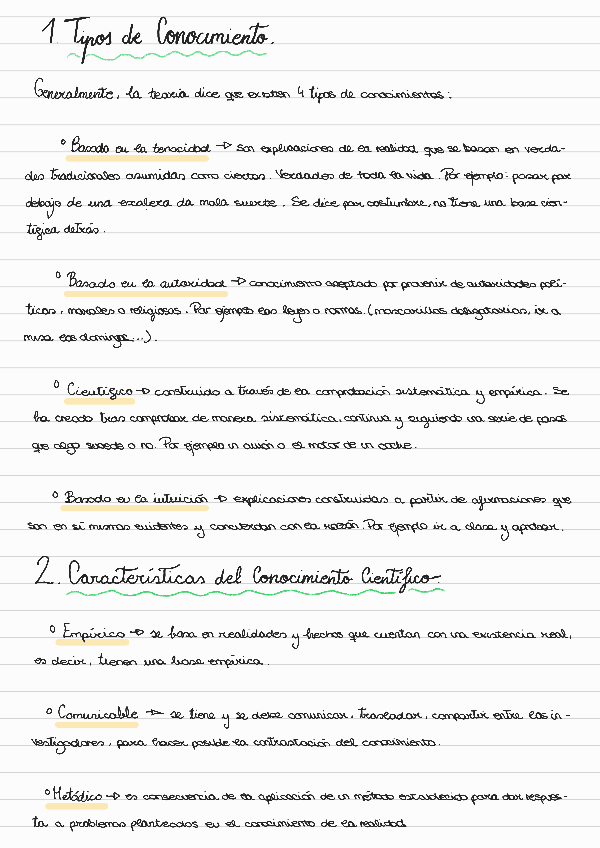 1. Tipos de Conocimiento.
Generalmente, la teoría dice que existen 4 tipos de conocimientos:
° Basado en la tenacidad → son explicaciones de la realidad que se basan en verda-
des tradicionales asumidas como ciertas. Verdades de toda la vida. Por ejemplo: pasar por
debajo de una escalera da mala suerte. Se dice por costumbre, no tiene una base cien-
tífica detrás.
° Basado en la autoridad → conocimiento aceptado por provenir de autoridades polí-
ticas, morales o religiosas. Por ejemplo las leyes o normas. (mascarillas obligatorias, ir a
misa los domingos...).
° Científico → construido a través de la comprobación sistemática y empírica. Se
ha creado tras comprobar de manera sistemática, continua y siguiendo una serie de pasos
que algo sucede o no. Por ejemplo un avión o el motor de un coche.
° Basado en la intuición → explicaciones construidas a partir de afirmaciones que
son en sí mismas evidentes y concuerdan con la razón. Por ejemplo ir a clase y aprobar.
2. Características del Conocimiento Científico.
° Empírico → se basa en realidades y hechos que cuentan con una existencia real,
es decir, tienen una base empírica.
° Comunicable → se tiene y se debe comunicar, trasladar, compartir entre los in-
vestigadores, para hacer posible la contrastación del conocimiento.
° Metódico → es consecuencia de la aplicación de un método establecido para dar respues-
ta a problemas planteados en el conocimiento de la realidad